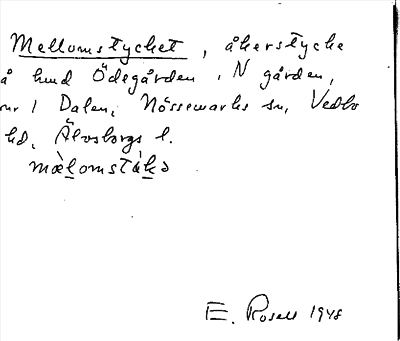 Mellomstycket, åkerstycke
å hmd Ödegården, N gården,
nr 1 Dalen, Nössemarks sn, Vedbo
hd, Älvsborgs l.
mælomstɩkə
E. Rosell 1948